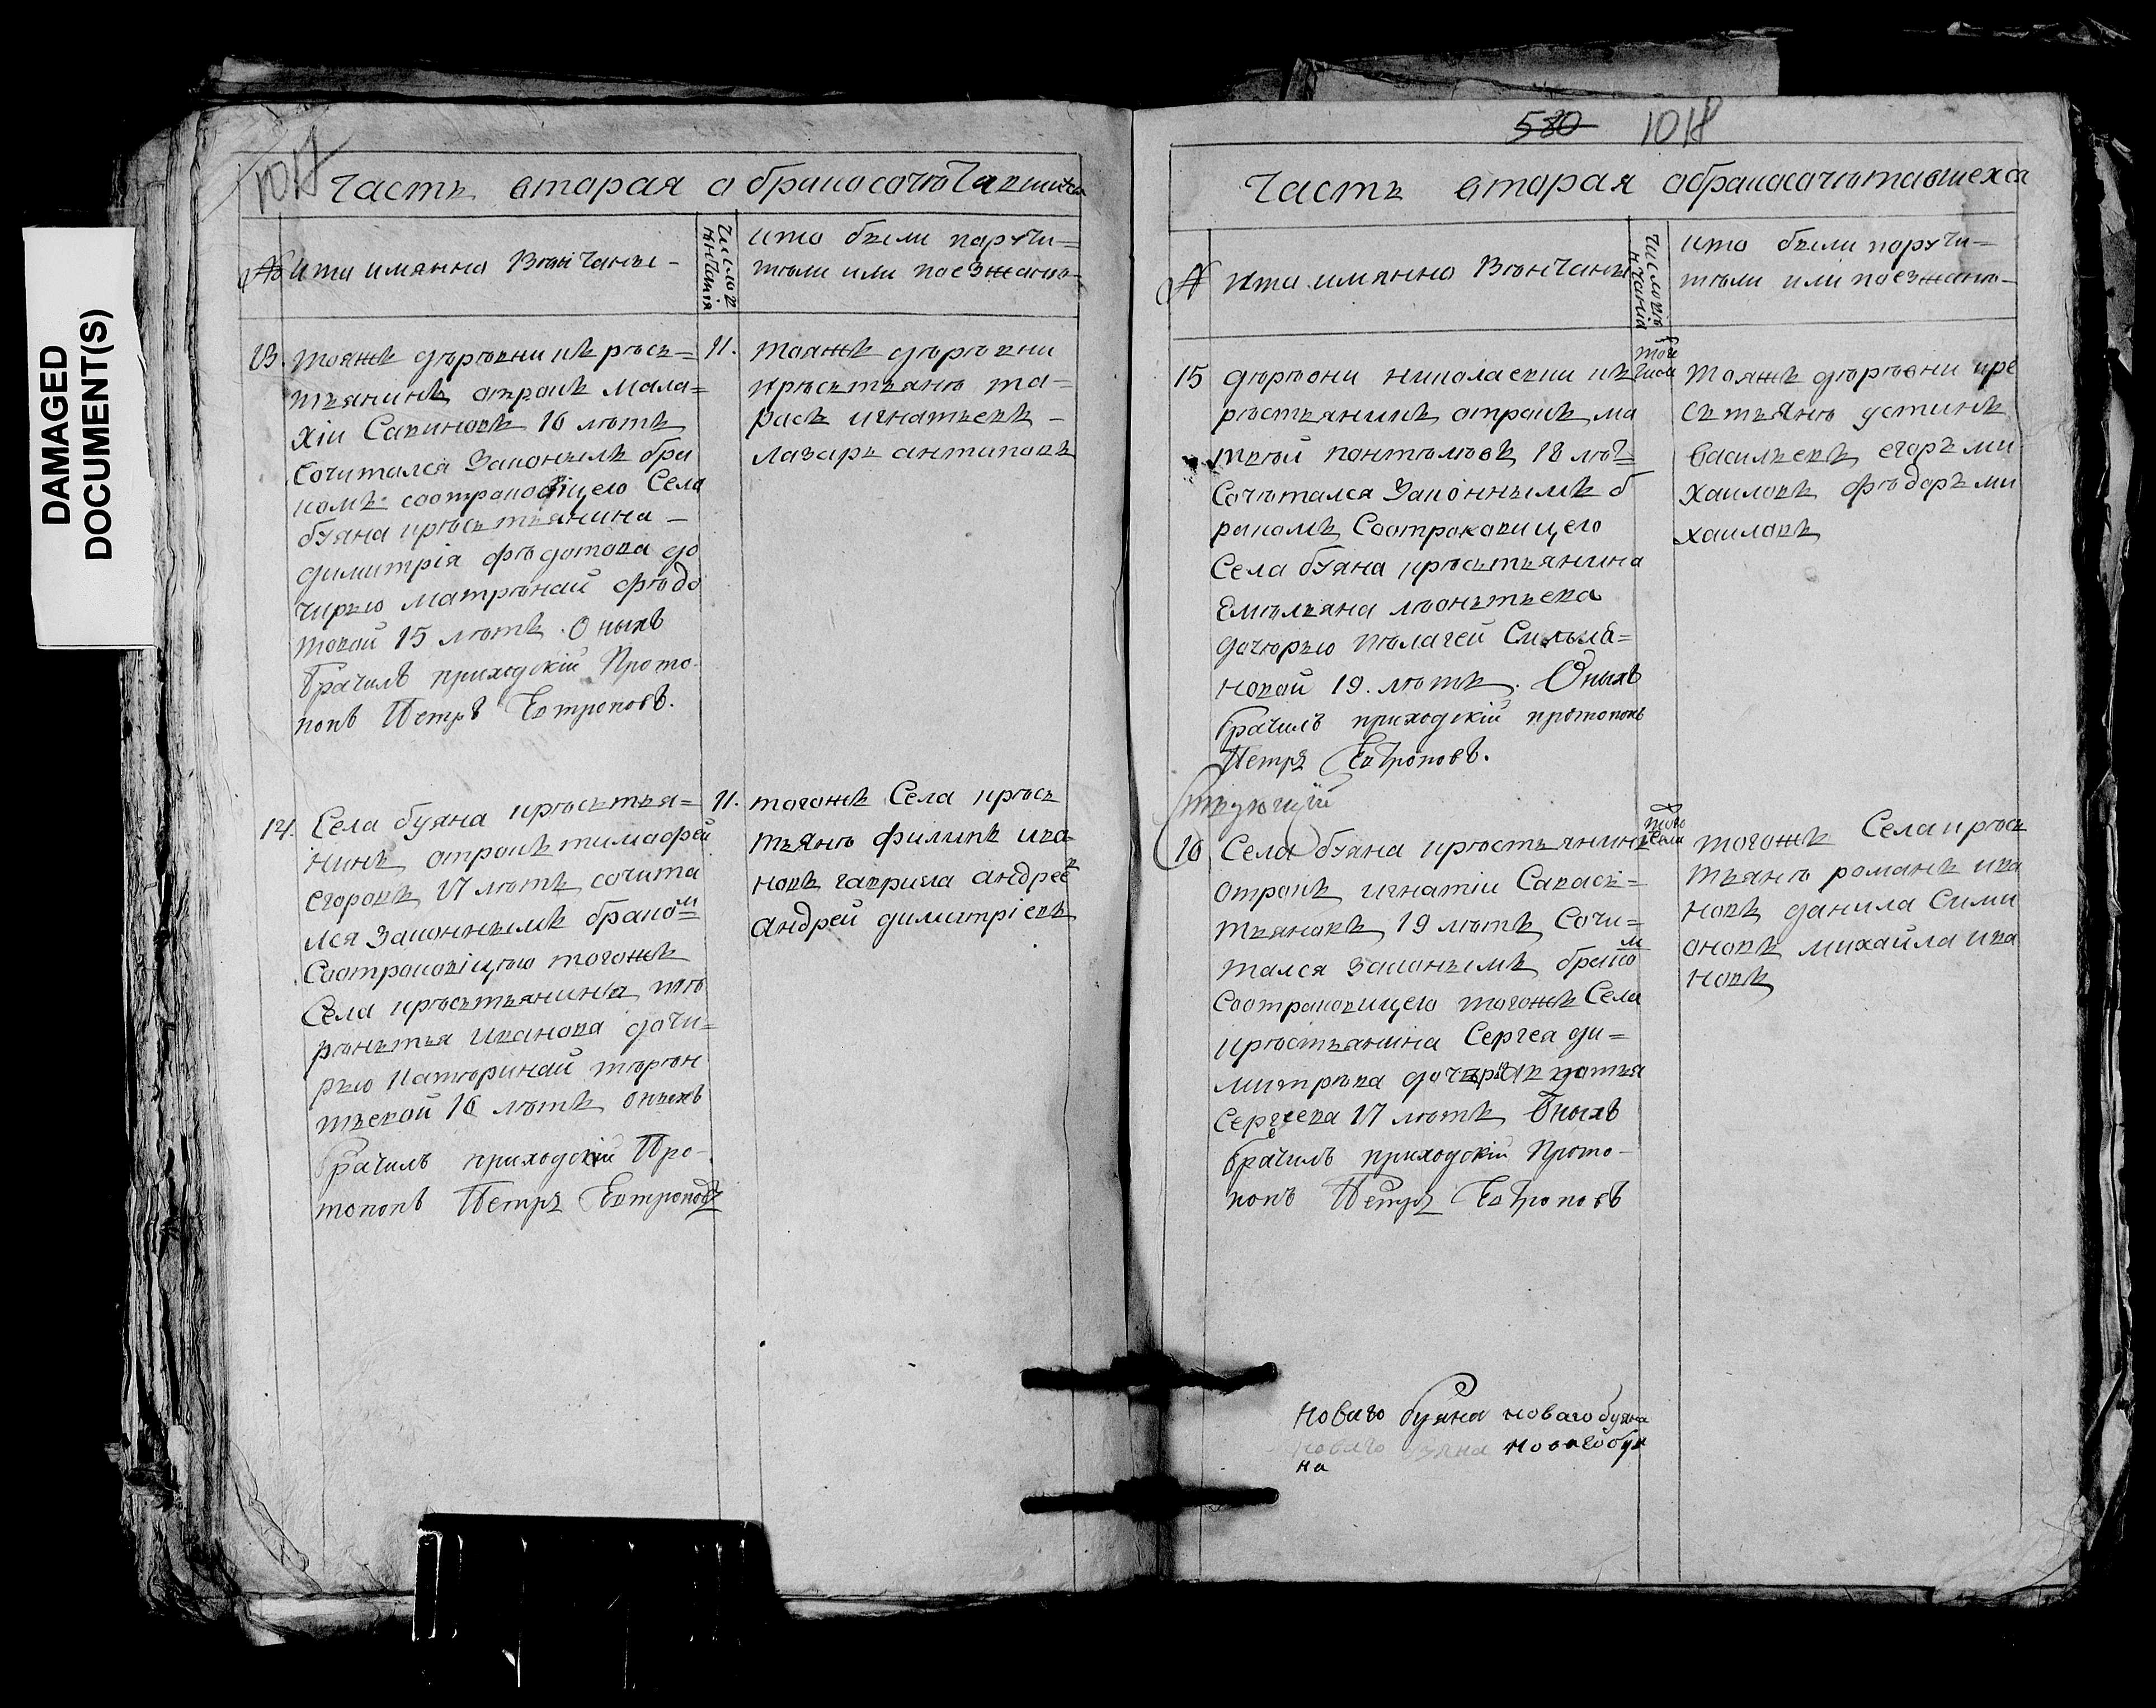 DAMAGED
DOCUMENT(S)
1017
Часть вторая о бракосочетавшихся
№ кто имянно венчаны
число венчания
кто были поручи=
тели или поезжаня
13. тояжъ деревни кресь=
тьянинъ отрокъ Мала=
хіи Савиновъ 16 летъ
Сочитался законнымъ бра
комъ соотрокавіцею Села
буяна кресьтьянина
димитрія федотова до
чирью матренай федо
товай 15 летъ. Оныхъ
брачилъ приходскій Прото
попъ Петръ Евтроповъ.
11. тояжъ деревни
кресьтьяне та=
расъ игнатьевъ
лазарь антиповъ
14. Села буяна кресьтья=
нинъ отрокъ тимофей
егоровъ 17 летъ сочита
лся законнымъ браком
Соотрокавіцею тогожъ
Села кресьтьянина те
рентья иванова дочи=
рью катеринай терен
тьевой 16 летъ оныхъ
брачилъ приходскій Про-
топопъ Петръ Евтроповъ
11. тогожъ Села кресь
тьяне филипъ ива
новъ гаврила андреевъ
андрей димитріевъ
580 1018
Часть вторая обракосочетавшехся
№ кто имянно венчаны
число венчания
кто были поручи=
тели или поезжаня
15 деревни николаевки къ
рестьянинъ отрокъ ма
твей пантелевъ 18 летъ
Сочетался законнымъ б
ракомъ Соотроковицею
Села буяна кресьтьянина
Емельяна леонтьева
дочерью пелагей Емельа=
новай 19. летъ. Оныхъ
брачилъ приходскій протопопъ
Петръ Евтроповъ.
тояжъ деревни кре
стьяне устинъ
васильевъ егоръ ми
хаиловъ федоръ ми
хаиловъ
16 Села буяна крестьянинъ
отрокъ игнатіи Савась=
тьяновъ 19 летъ Сочи=
тался законымъ браком
Соотроковицею тогожъ Села
крестьянина Сергея ди=
митрева дочерью авдотья
Сергеева 17 летъ Оныхъ
брачилъ приходскій Прото-
попъ Петръ Евтроповъ
тогожъ Села кресь
тьяне романъ ива
новъ данила Сими
оновъ михайла ива
новъ
Новаго буяна новаго буяна
новаго буяна новаго буя
на